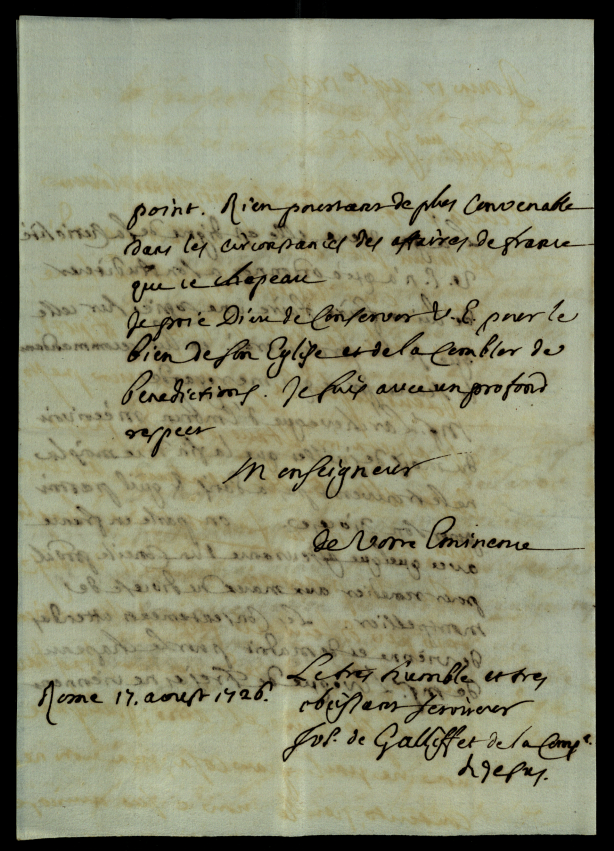 point. Rien pourtant de plus Convenable
dans les circonstances des affaires de france
que ce chapeau
Je prie Dieu de Conserver V. E. pour le
bien de son Eglise et de la Combler de
benedictions. Je suis avec un profond
respect
Monseigneur
de Votre Eminence
Le tres humble et tres
Rome 17. aoust 1726.
obeissant serviteur
Jos. de Galliffet de la Comp.e
de Jesus.